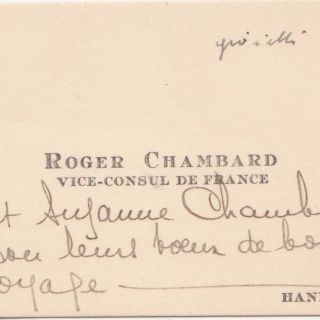 ROGER CHAMBARD
VICE-CONSUL DE FRANCE
et Suzanne Chamb
leurs vœux de bo
oyage
HAN